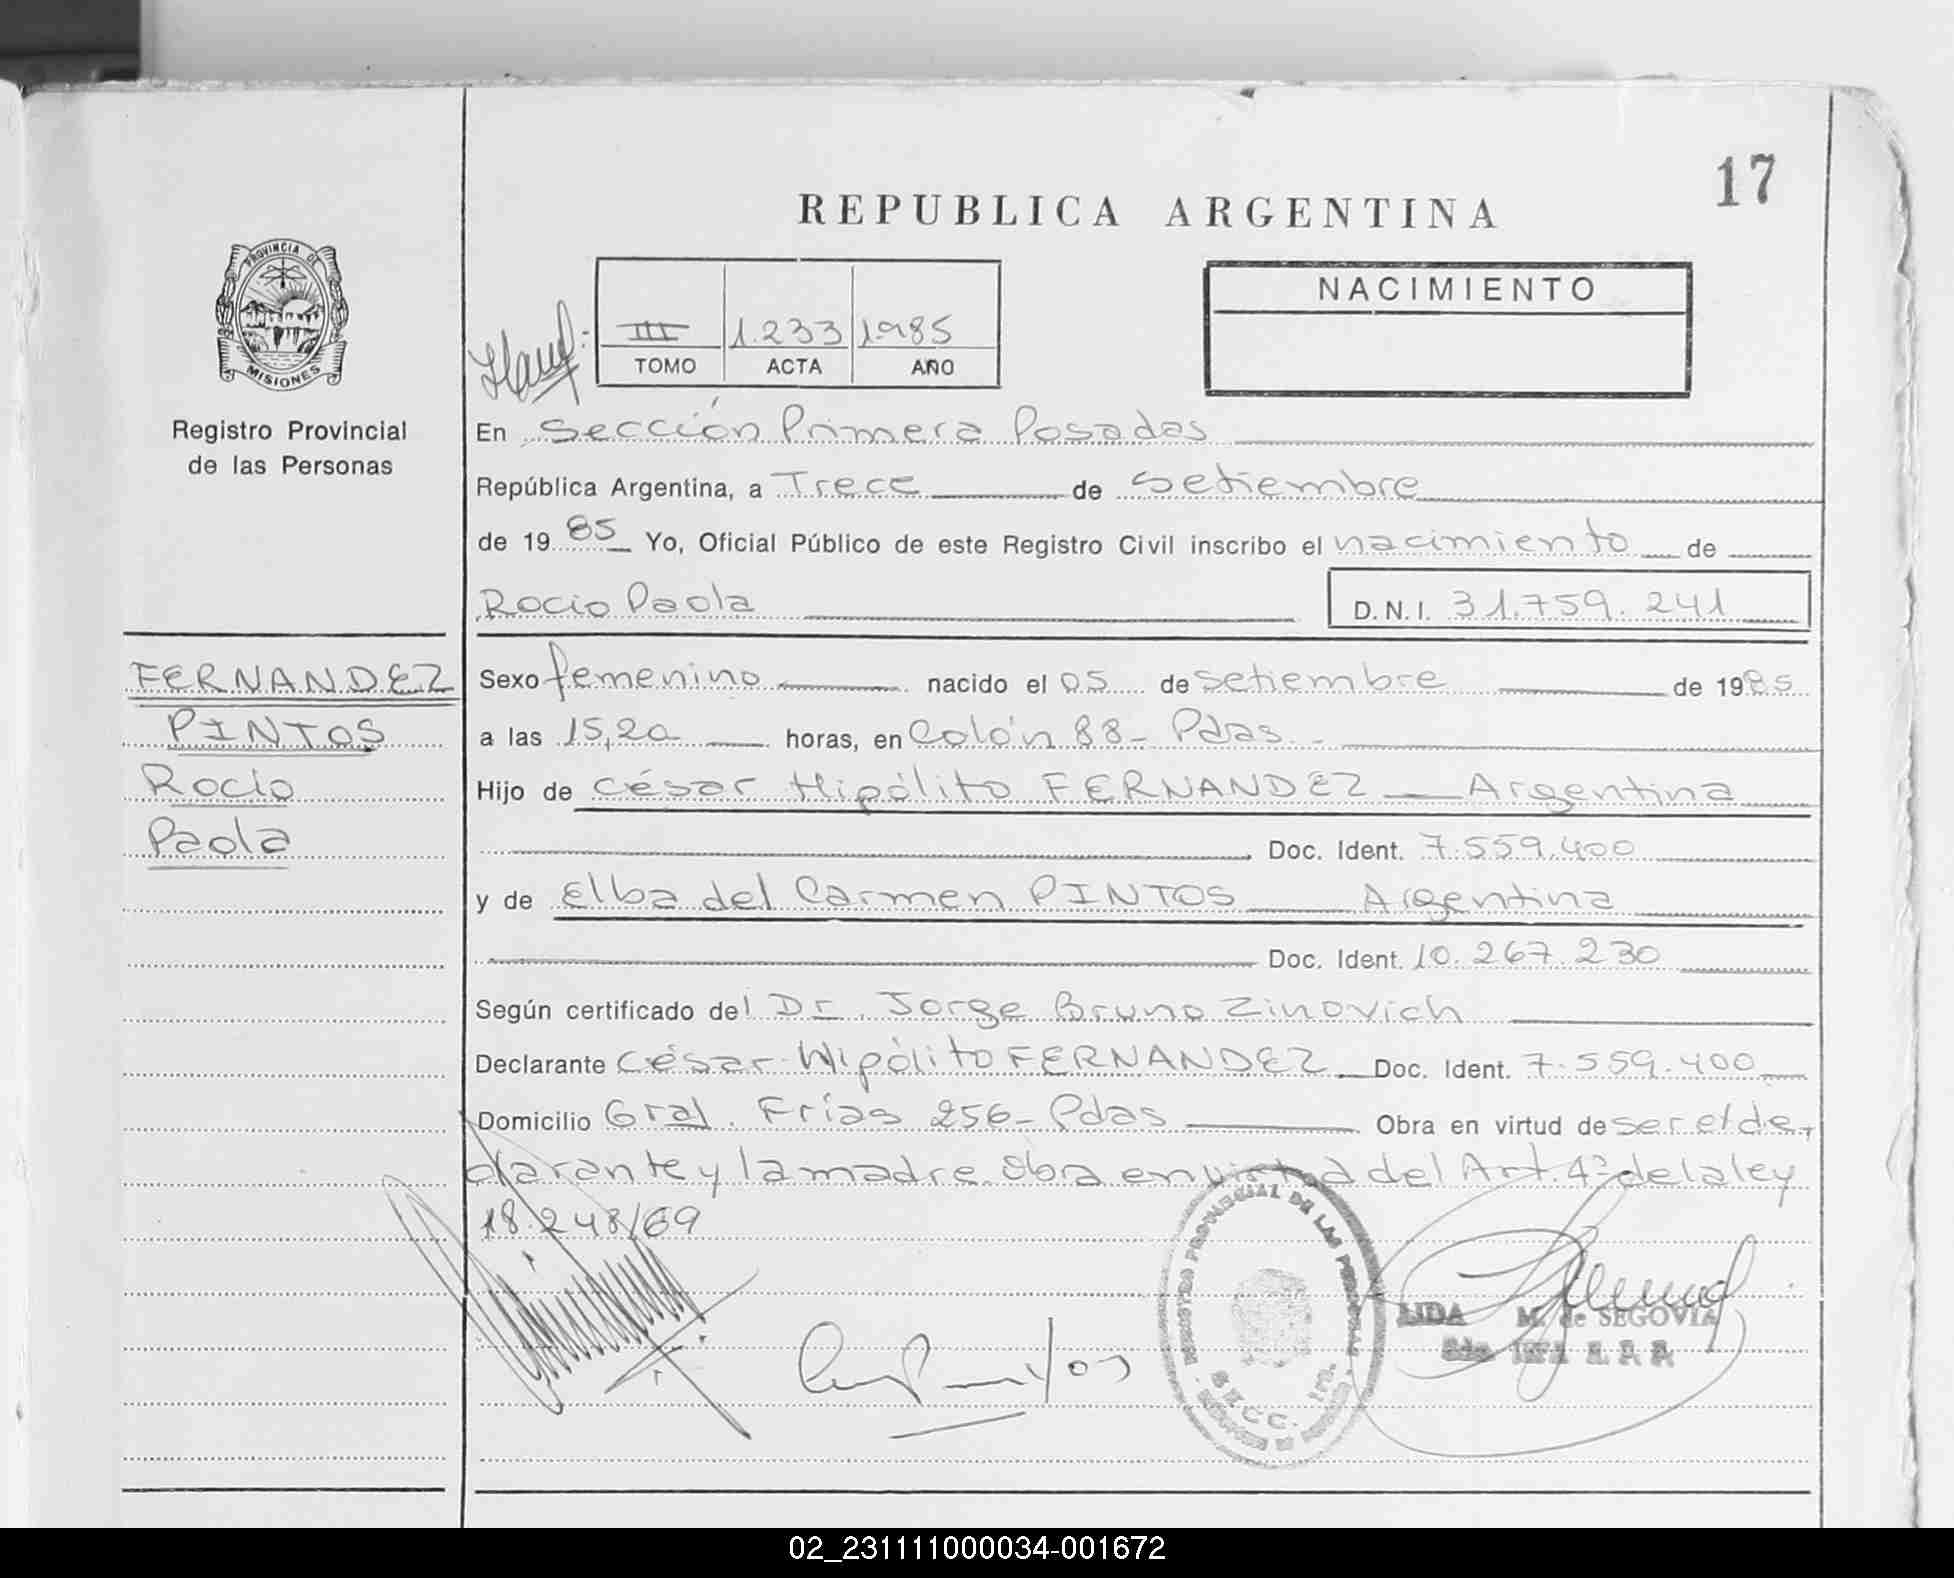 17
REPUBLICA ARGENTINA
PROVINCIA DE
MISIONES
Registro Provincial
de las Personas
III 1.233 1985
TOMO ACTA AÑO
NACIMIENTO
En Sección Primera Posadas
República Argentina, a Trece de Setiembre
de 1985 Yo, Oficial Público de este Registro Civil inscribo el nacimiento de
Rocio Paola D.N.I. 31.759.241
FERNANDEZ
PINTOS
Rocío
Paola
Sexo femenino nacido el 05 de Setiembre de 1985
a las 15,20 horas, en Colón 88- Pdas.-
Hijo de César Hipólito FERNANDEZ Argentina
Doc. Ident. 7.559.400
y de Elba del Carmen PINTOS Argentina
Doc. Ident. 10.267.230
Según certificado del Dr. Jorge Bruno Zinovich
Declarante César Hipólito FERNANDEZ Doc. Ident. 7.559.400
Domicilio Gral. Frías 256- Pdas Obra en virtud de ser el de-
clarante y la madre. Obra en virtud del Art. 4º de la ley
18.248/69
REGISTRO PROVINCIAL DE LAS PERSONAS
SECC. 1ra.
LIDA M. de SEGOVIA
R. P. P.
02_231111000034-001672